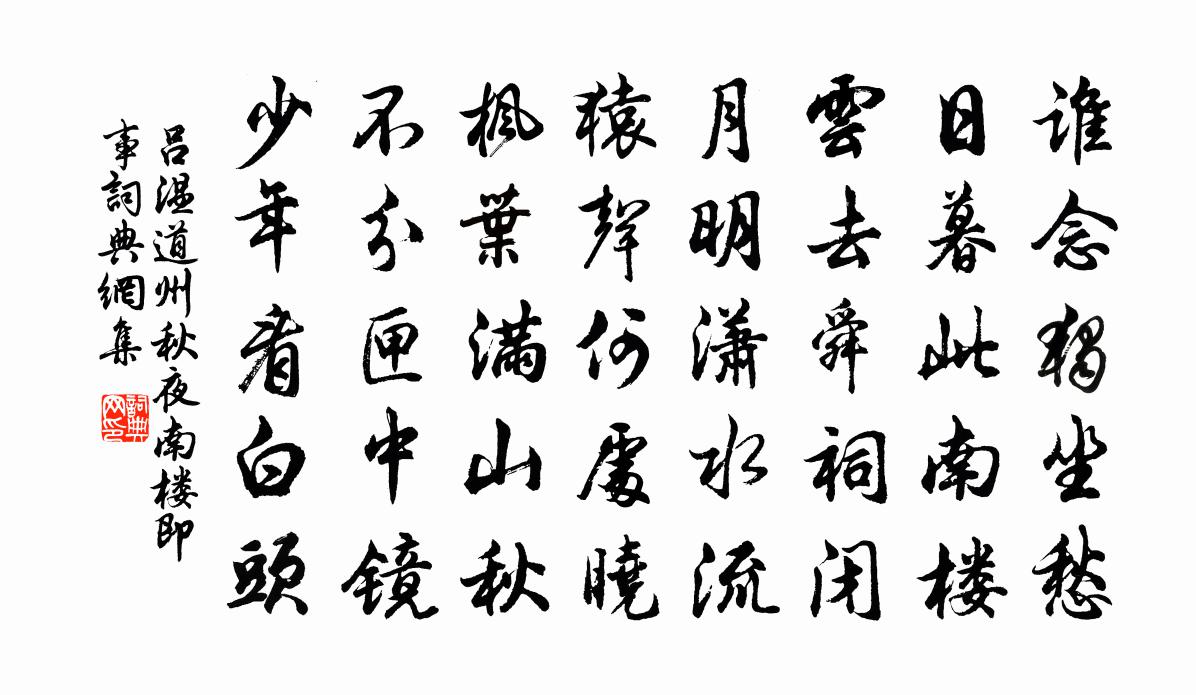 谁念独坐愁
日暮此南楼
雲去舜祠闭
月明潇水流
猿聲何處曉
枫葉满山秋
不分匣中镜
少年看白頭
吕温道州秋夜南楼即
事詞典網集
詞典网印